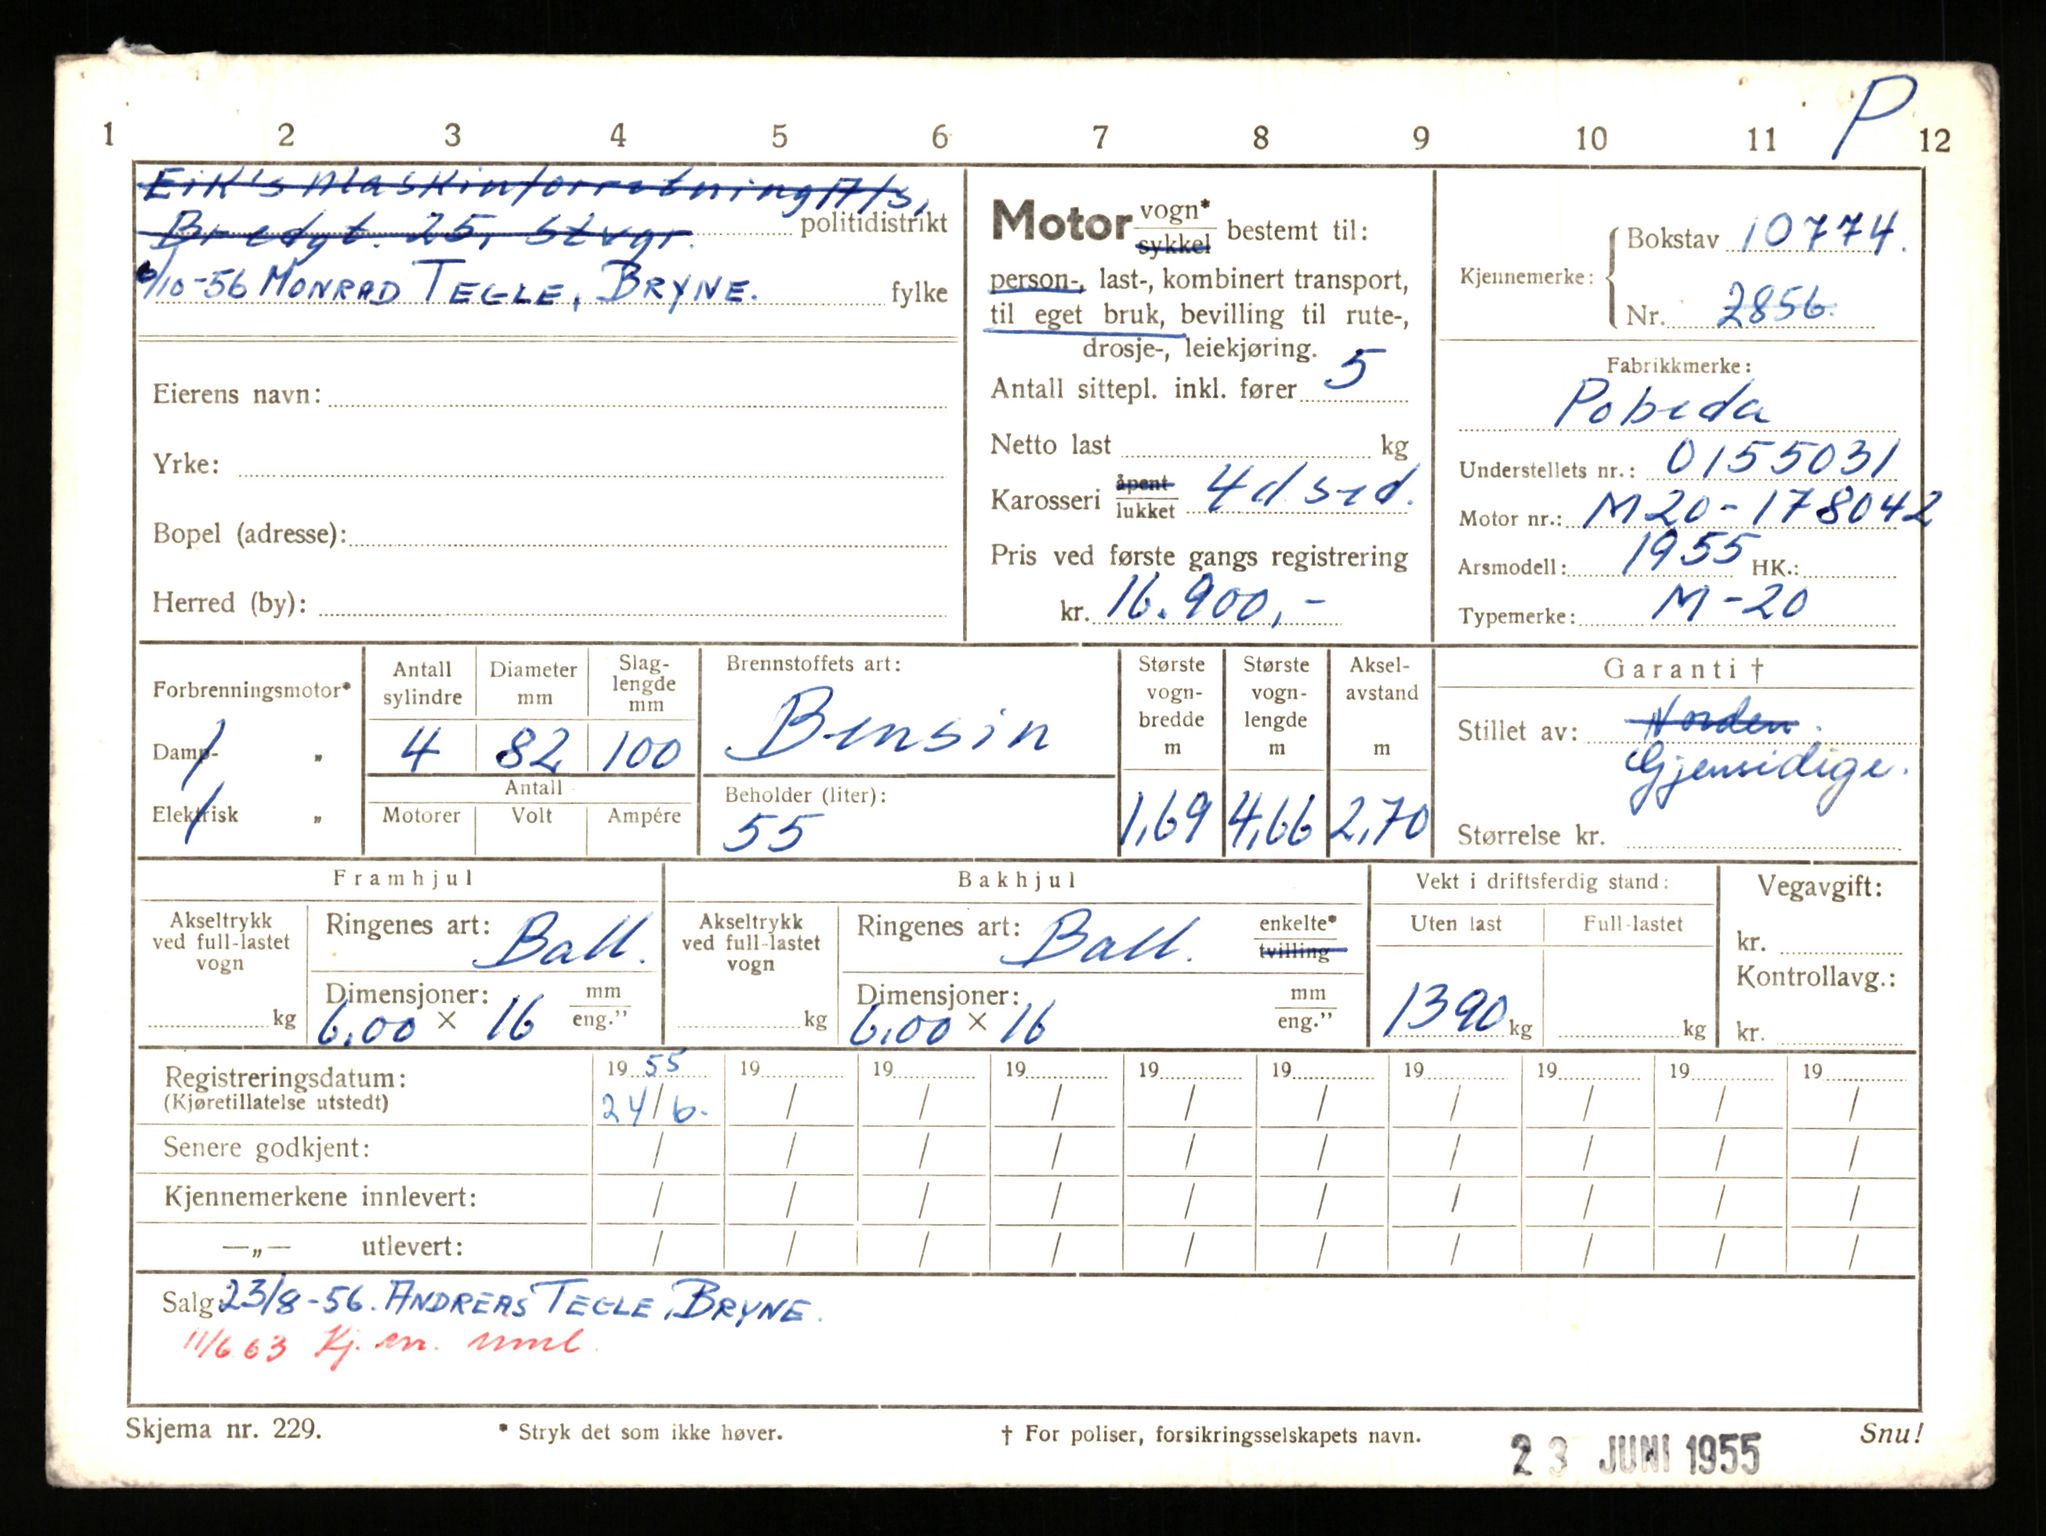 P
1 2 3 4 5 6 7 8 9 10 11 12
Eik's Maskinforretning A/S,
Bredgt. 25, Stvgr. politidistrikt
6/10-56 MONRAD TEGLE, BRYNE. fylke
Eierens navn:
Yrke:
Bopel (adresse):
Herred (by):
Motor vogn* sykkel bestemt til:
person-, last-, kombinert transport,
til eget bruk, bevilling til rute-,
drosje-, leiekjøring.
Antall sittepl. inkl. fører 5
Netto last kg
Karosseri åpent lukket 4 d sed.
Pris ved første gangs registrering
kr. 16.900,-
Kjennemerke: Bokstav 10774.
Nr. 2856.
Fabrikkmerke:
Pobeda
Understellets nr.: 0155031
Motor nr.: M20-178042
Arsmodell: 1955 HK.:
Typemerke: M-20
Forbrenningsmotor*
Damp- „
Elektrisk „
Antall sylindre 4
Diameter mm 82
Slag-lengde mm 100
Antall
Motorer Volt Ampére
Brennstoffets art:
Bensin
Beholder (liter):
55
Største vogn-bredde m 1,69
Største vogn-lengde m 4,66
Aksel-avstand m 2,70
Garanti †
Stillet av: Norden.
Gjensidige.
Størrelse kr.
Framhjul
Akseltrykk ved full-lastet vogn
kg
Ringenes art: Ball.
Dimensjoner: mm eng."
6.00 × 16
Bakhjul
Akseltrykk ved full-lastet vogn
kg
Ringenes art: Ball. enkelte* tvilling
Dimensjoner: mm eng."
6.00 × 16
Vekt i driftsferdig stand:
Uten last Full-lastet
1390 kg kg
Vegavgift:
kr.
Kontrollavg.:
kr.
Registreringsdatum: 19 55 19 19 19 19 19 19 19 19 19
(Kjøretillatelse utstedt) 24/6. / / / / / / / / /
Senere godkjent: / / / / / / / / / /
Kjennemerkene innlevert: / / / / / / / / / /
—„— utlevert: / / / / / / / / / /
Salg: 23/8-56. ANDREAS TEGLE, BRYNE.
11/6.63 Kj. m. innl.
Skjema nr. 229. * Stryk det som ikke høver. † For poliser, forsikringsselskapets navn. Snu!
23 JUNI 1955